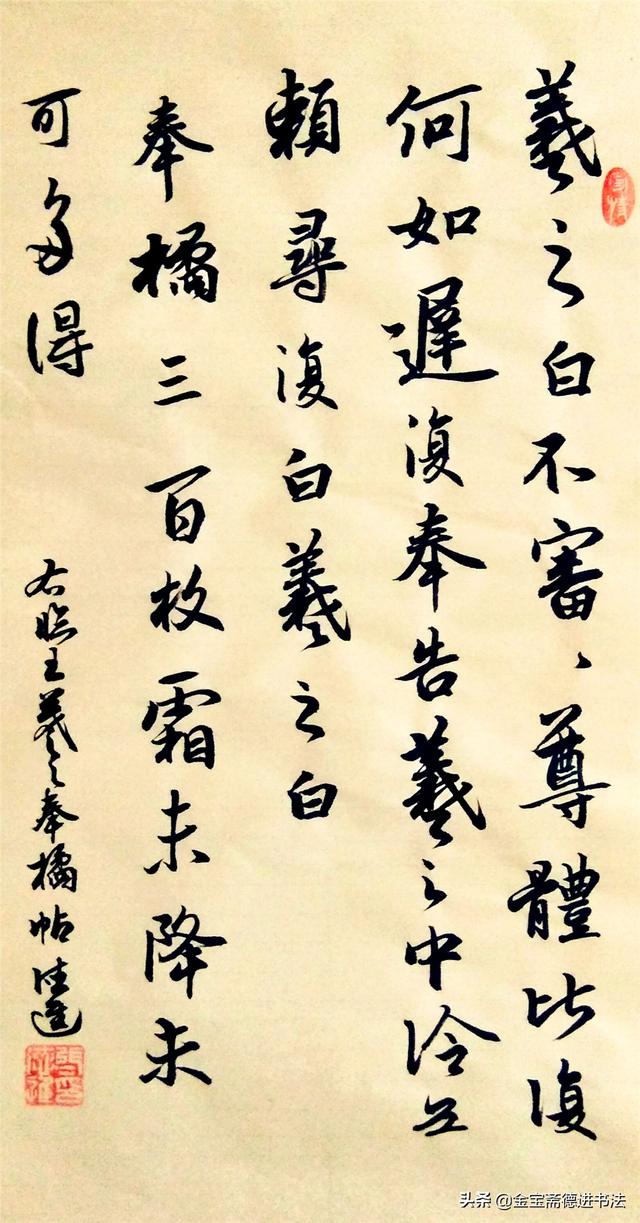 羲之白不審、尊體比復
何如遲復奉告羲之中冷無
賴尋復白羲之白
奉橘三百枚霜未降未
可多得
右臨王羲之奉橘帖德進
头条@金宝斋德进书法